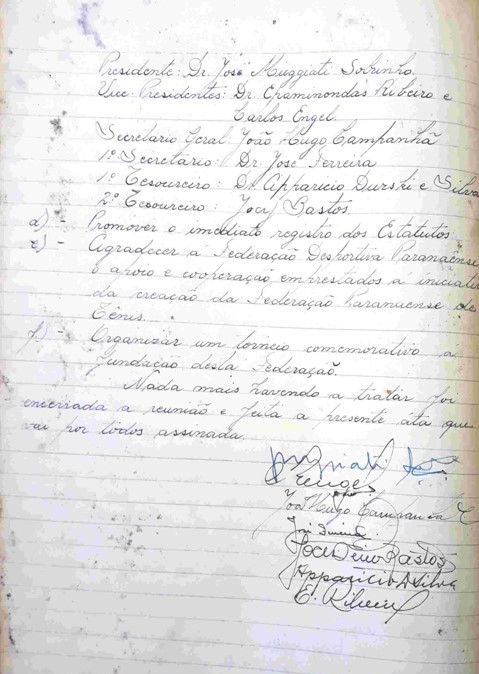 Presidente: Dr. José Muggiati Sobrinho.
Vice-Presidentes: Dr. Epaminondas Ribeiro e
Carlos Engel.
Secretario Geral: João Hugo Campanhã
1º Secretário: Dr. José Ferreira
1º Tesoureiro: Dr. Apparicio Durski e Silva
2º Tesoureiro: Jocy Bastos.
d) - Promover o imediato registro dos Estatutos.
e) - Agradecer à Federação Desportiva Paranaense
o apoio e cooperação emprestados à iniciati
da creação da Federação Paranaense de
Tenis.
f) - Organizar um torneio comemorativo à
Fundação desta Federação.
Nada mais havendo a tratar foi
encerrada a reunião e feita a presente ata que
vai por todos assinada.
C Engel
João Hugo Campanhã
José
Bastos
Apparicio D Silva
E. Ribeiro